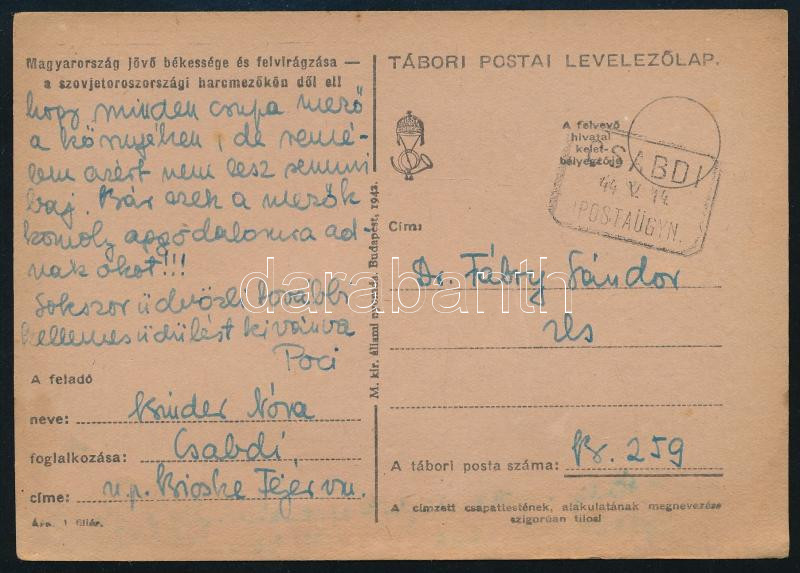 Magyarország jövő békessége és felvirágzása —
a szovjetoroszországi harcmezőkön dől el!
hogy minden csupa mező
a környéken, de remé-
lem azért nem lesz semmi
baj. Bár ezek a mezők
komoly aggodalomra ad-
nak okot!!!
Sokszor üdvözli további
kellemes üdülést kívánva
Poci
A feladó
neve: Kinder Nóra
foglalkozása: Csabdi,
címe: u.p. Bicske Fejér vm.
Ára 1 fillér.
M. kir. állami nyomda, Budapest, 1942.
TÁBORI POSTAI LEVELEZŐLAP.
A felvevő
hivatal
kelet-
bélyegzője
CSABDI
44 V. 14.
POSTAÜGYN.
Cím:
Dr. Fábry Sándor
A tábori posta száma: B. 259
A címzett csapattestének, alakulatának megnevezése
szigorúan tilos!
darabanth